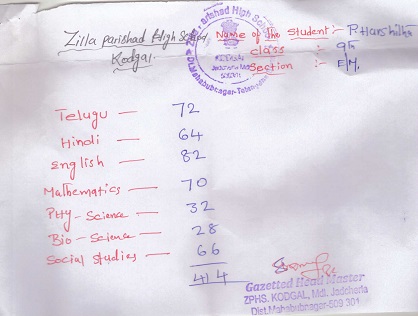 Zilla parishad High School
Kodgal.
Name of the Student :- P. Harshitha
class :- 9th
Section :- E/M.
Telugu — 72
Hindi — 64
English — 82
Mathematics — 70
PHy-Science — 32
Bio-Science — 28
Social studies — 66
414
Gazetted Head Master
ZPHS. KODGAL, Mdl. Jadcherla
Dist. Mahabubnagar-509 301